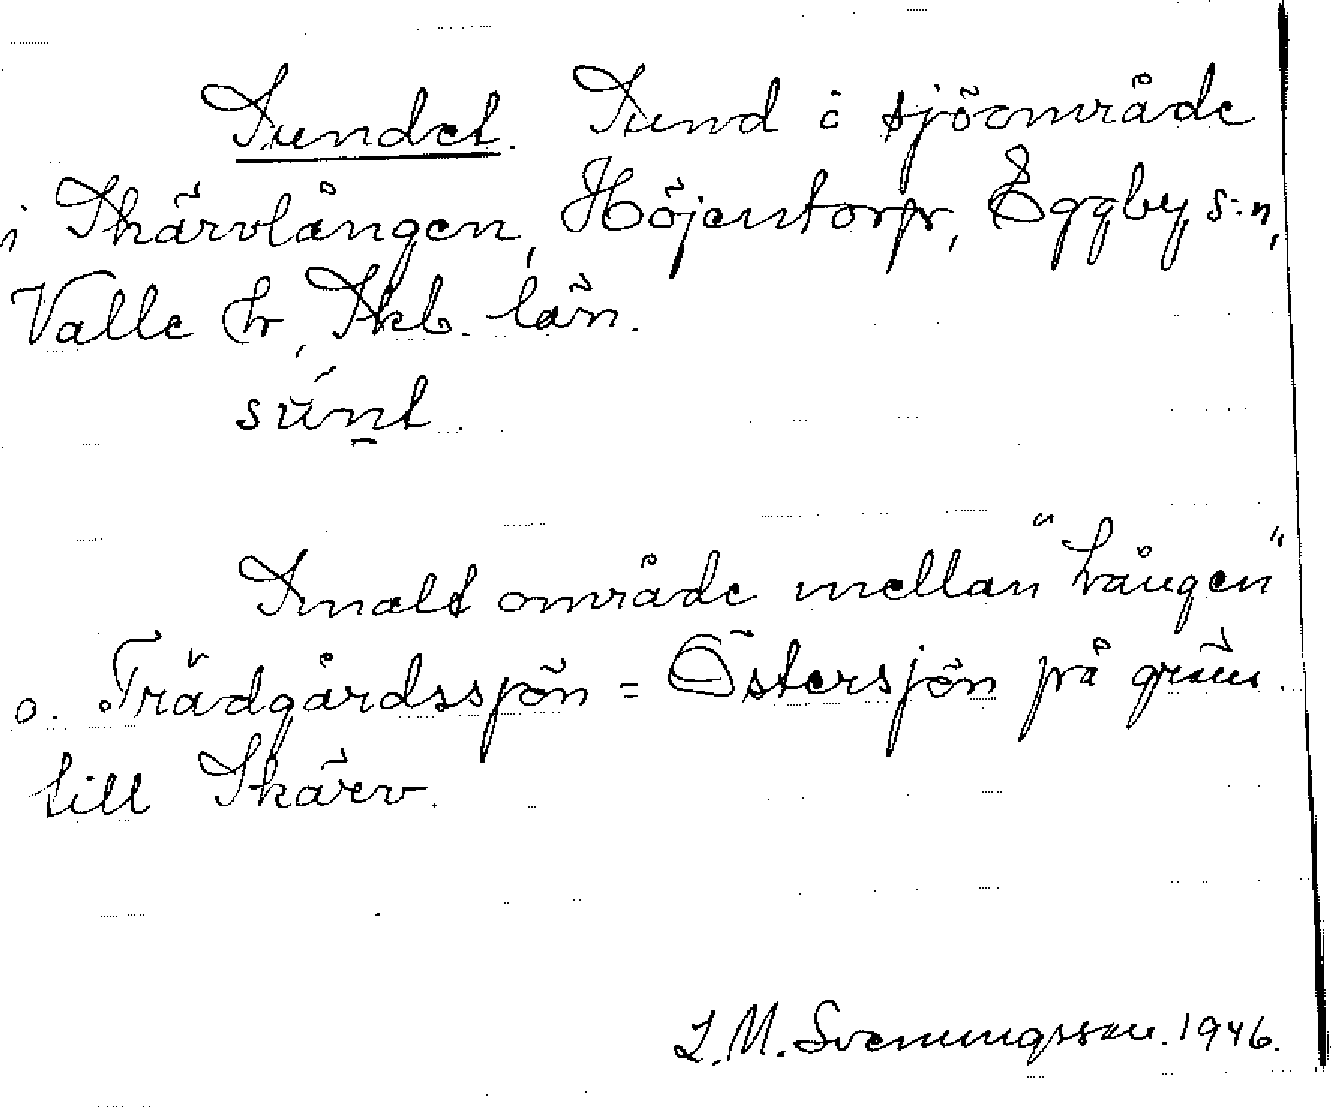 Sundet. Sund i sjöområde
i Skärvlången, Höjentorp, Eggby s:n,
Valle hr, Skb. län.
Smalt område mellan "Lången"
o. Trädgårdssjön = Östersjön på gräns
till Skärv.
L.M. Svenungsson. 1946.